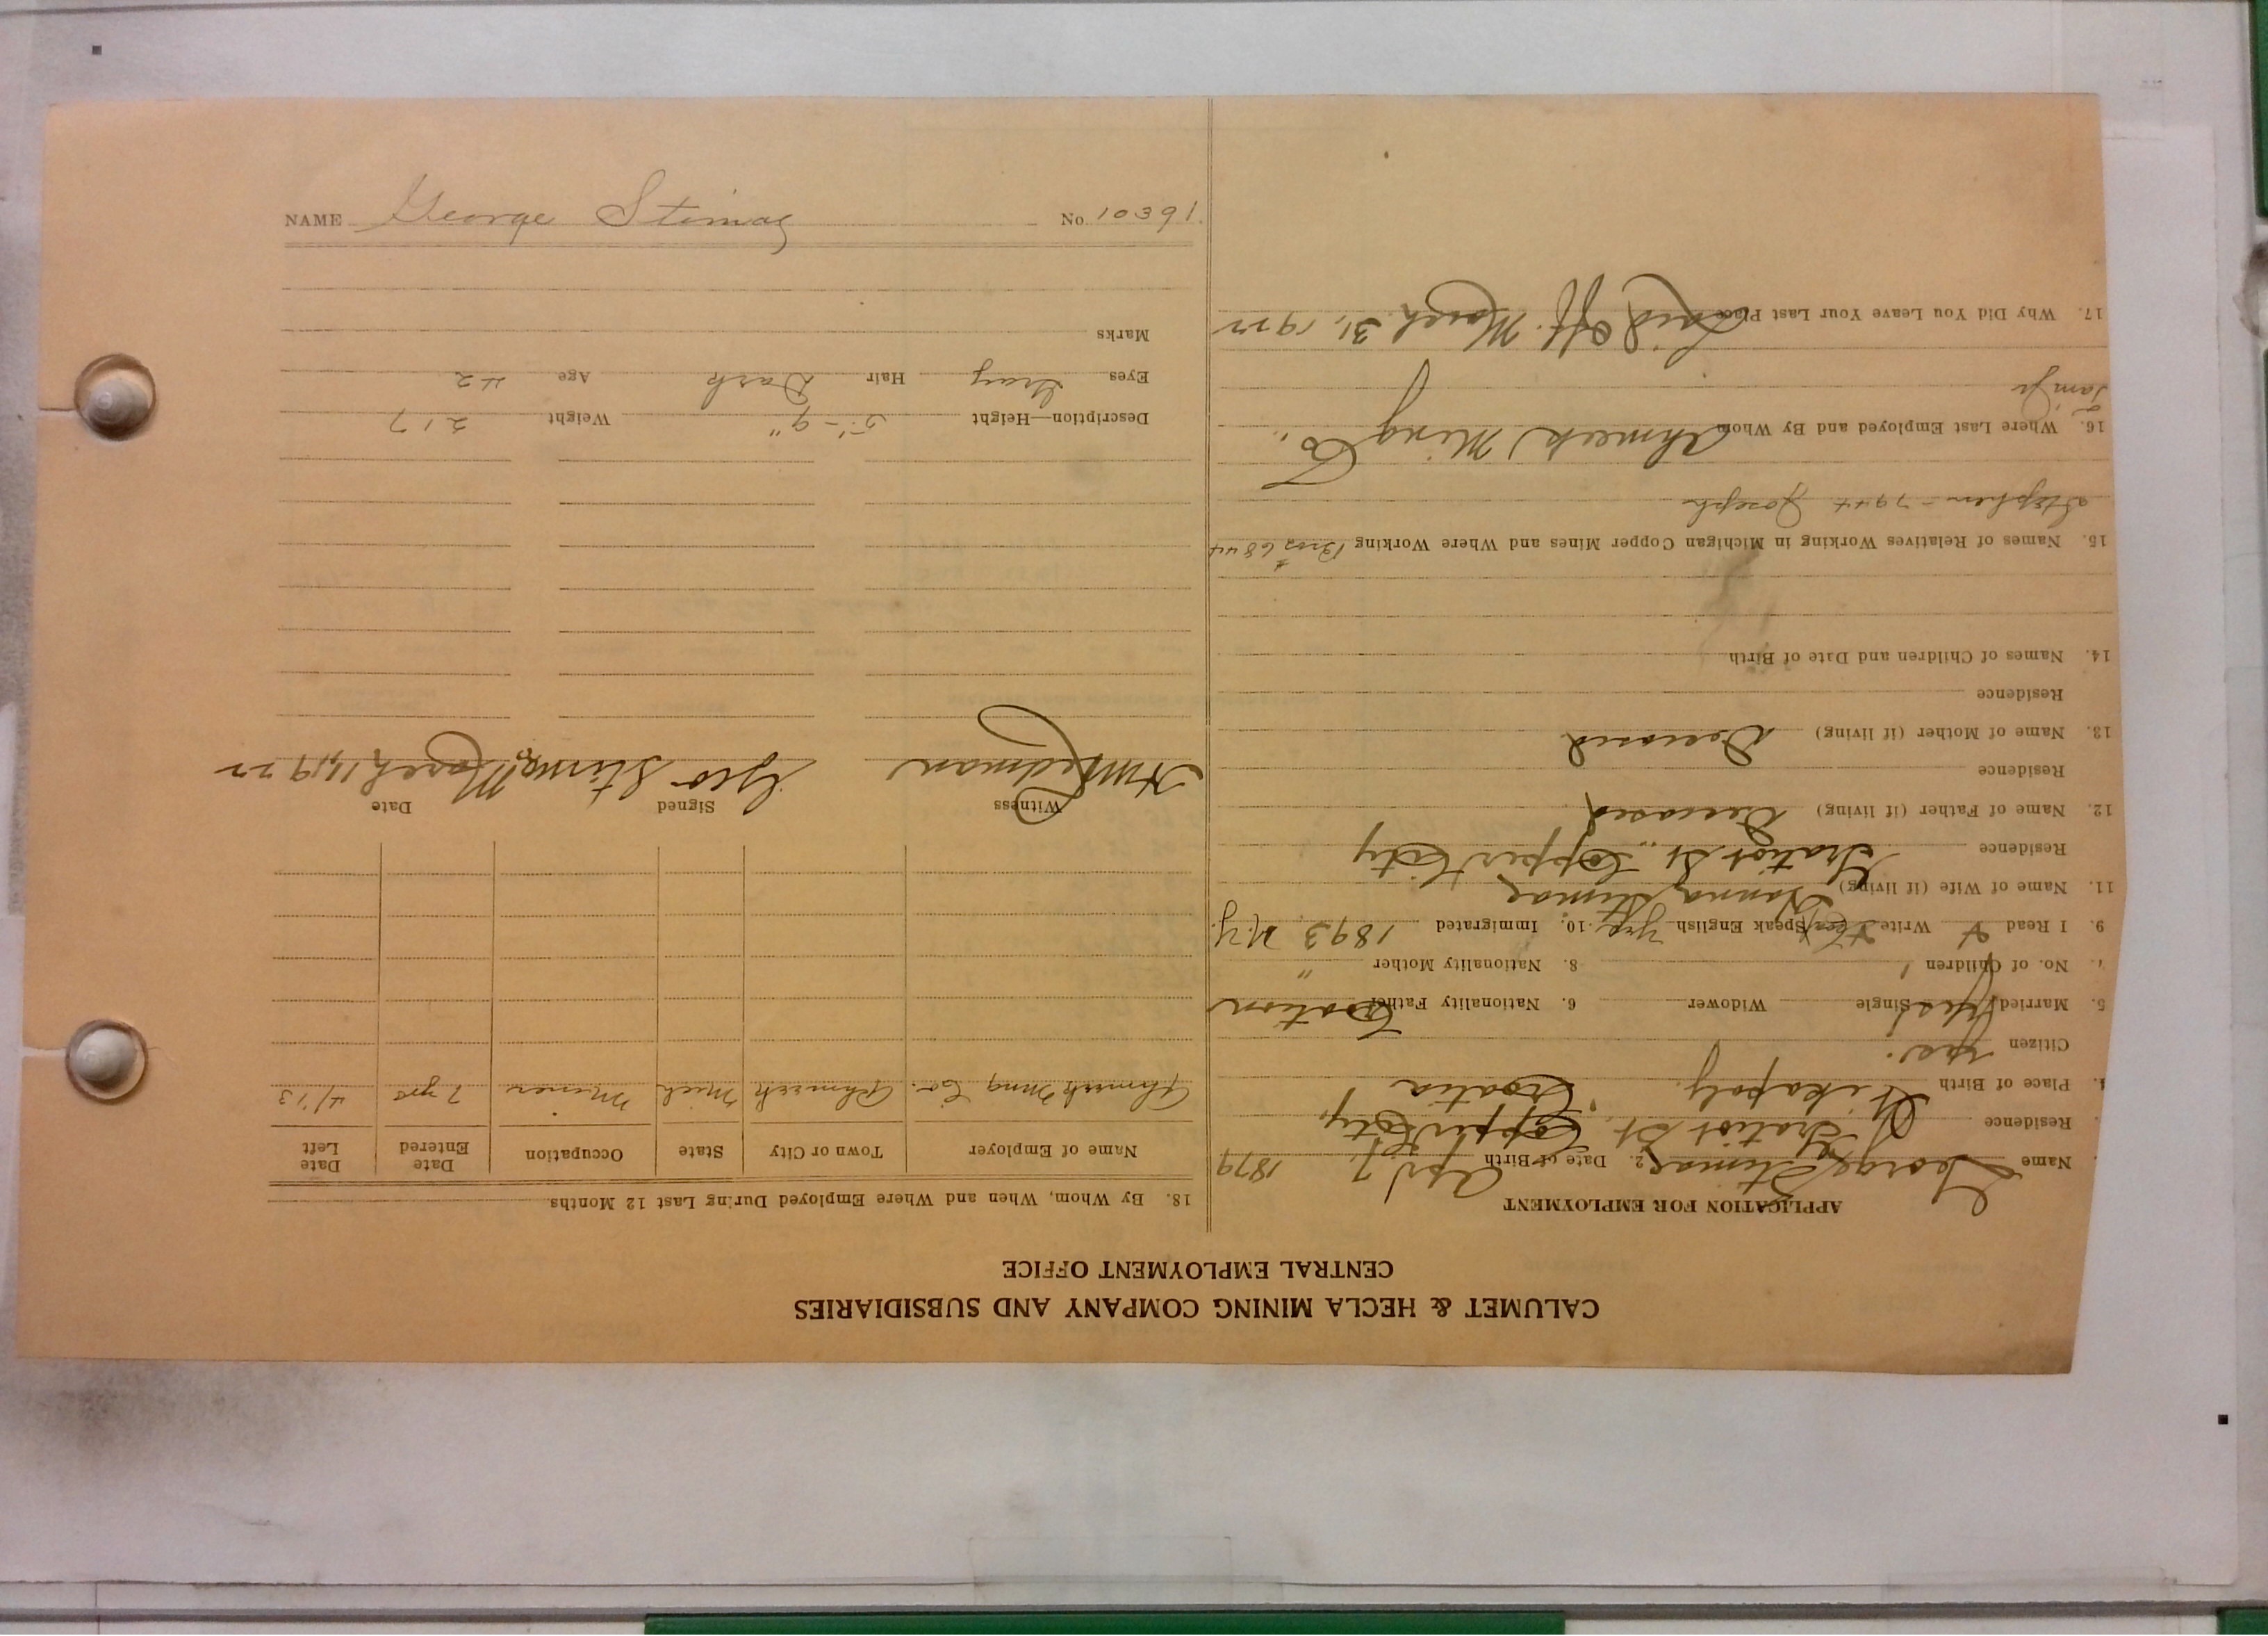 CALUMET & HECLA MINING COMPANY AND SUBSIDIARIES
CENTRAL EMPLOYMENT OFFICE
APPLICATION FOR EMPLOYMENT
Name George Stimac 2. Date of Birth Apr 7 1879
Residence Gratiot St. Copper City
4. Place of Birth Croatia
Citizen yes.
5. Married yes Single Widower 6. Nationality Father Croation
7. No. of Children 1 8. Nationality Mother "
9. I Read & Write & Speak English yes 10. Immigrated 1893 N.Y.
11. Name of Wife (if living) Stimac
Residence Gratiot St., Copper City
12. Name of Father (if living) Deceased
Residence
13. Name of Mother (if living) Deceased
Residence
14. Names of Children and Date of Birth
15. Names of Relatives Working in Michigan Copper Mines and Where Working Bros 6844
Stephen - 7944 Joseph
16. Where Last Employed and By Whom Ahmeek Ming Co.,
17. Why Did You Leave Your Last Place Laid off. March 31, 1922
18. By Whom, When and Where Employed During Last 12 Months
Name of Employer Town or City State Occupation Date Entered Date Left
Ahmeek Ming Co. Ahmeek Mich Miner 7 yrs 4/13
Witness Signed Date
Geo Stimac March 1922
Description—Height 5'-9" Weight 217
Eyes Gray Hair Dark Age 42
Marks
NAME George Stimac No. 10391